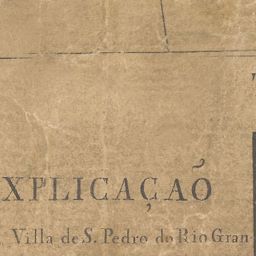 XPLICAÇAÕ
Villa de S. Pedro do Rio Gran